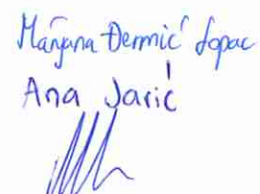 Marijana Đermić Lopac
Ana Jarić